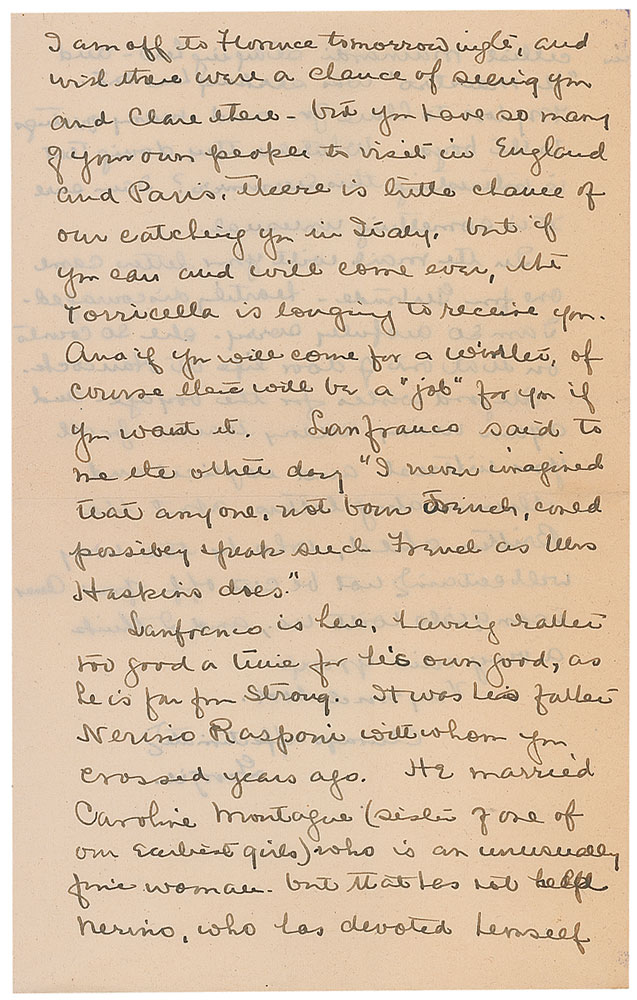 I am off to Florence tomorrow night, and
wish there were a chance of seeing you
and Clare there - but you have so many
of your own people to visit in England
and Paris, there is little chance of
our catching you in Italy. but if
you can and will come ever, the
Torricella is longing to receive you.
And if you will come for a winter, of
course there will be a "job" for you if
you want it. Lanfranco said to
me the other day "I never imagined
that anyone, not born French, could
possibly speak such French as Mrs
Haskins does."
Lanfranco is here, having rather
too good a time for his own good, as
he is far from strong. It was his father
Nerino Rasponi with whom you
crossed years ago. He married
Caroline Montague (sister of one of
our earliest girls) who is an unusually
fine woman. but that has not helped
Nerino, who has devoted himself